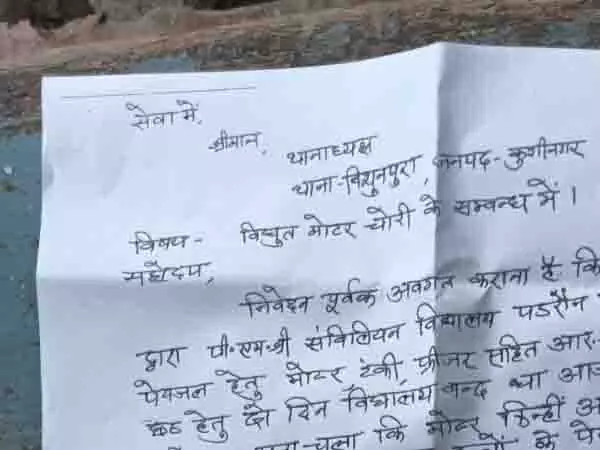 सेवा में,
श्रीमान, थानाध्यक्ष
थाना-विशुनपुरा, जनपद-कुशीनगर
विषय- विद्युत मोटर चोरी के सम्बन्ध में ।
महोदय,
निवेदन पूर्वक अवगत कराना है कि
द्वारा पी.एम.श्री संविलियन विद्यालय पडरौन
पेयजल हेतु मोटर, टंकी, फ्रीजर सहित आर.
हेतु दो दिन विद्यालय बन्द था आज
चला कि मोटर किन्हीं अ
के